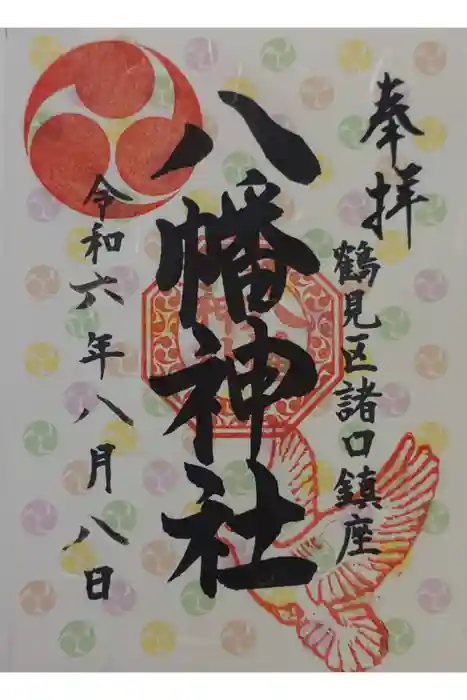 奉拝
鶴見区諸口鎮座
八幡神社
令和六年八月八日